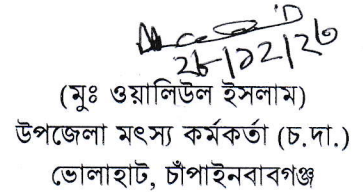 (মুঃ ওয়ালিউল ইসলাম)
উপজেলা মৎস্য কর্মকর্তা (চ.দা.)
ভোলাহাট, চাঁপাইনবাবগঞ্জ